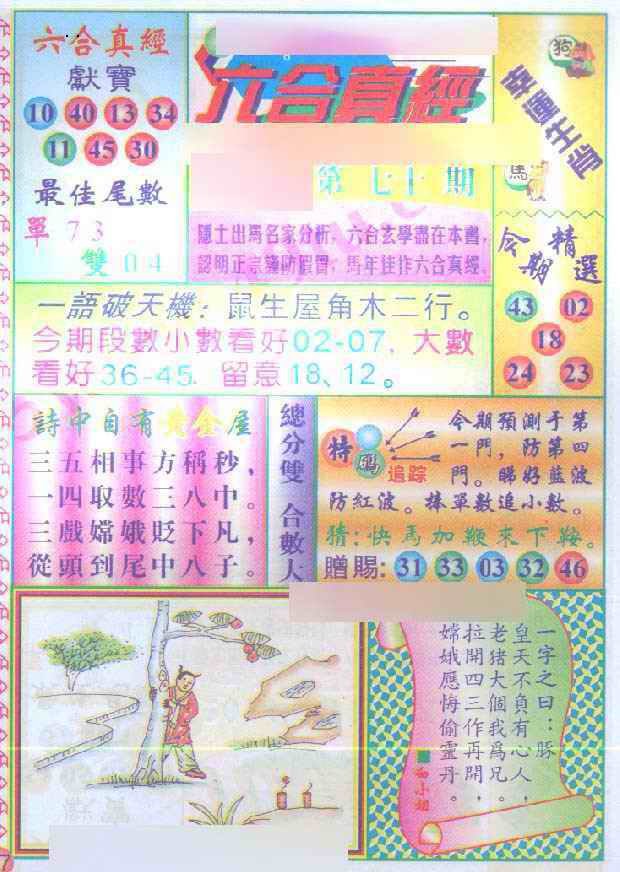 六合真經
獻寶
10 40 13 34
11 45 30
最佳尾數
單 7 3
雙 0 4
六合真經
第七十期
隱士出馬名家分析，六合玄學盡在本書，
認明正宗謹防假冒，馬年佳作六合真經
狗
馬
今期精選
43 02
18
24 23
一語破天機：鼠生屋角木二行。
今期段數小數看好02-07，大數
看好36-45 留意18、12。
詩中自有黃金屋
三五相事方稱秒，
一四取數三八中。
三戲嫦娥貶下凡，
從頭到尾中八子。
總分雙 合數大
特碼
追踪
今期預測于第
一門，防第四
門。睇好藍波
防紅波。棒單數追小數。
猜：快馬加鞭來下鞍。
贈賜：31 33 03 32 46
一字之曰：豚
皇天不負有心人，
老猪大個我爲兄。
拉開四三作再開，
嫦娥應悔偷靈丹。